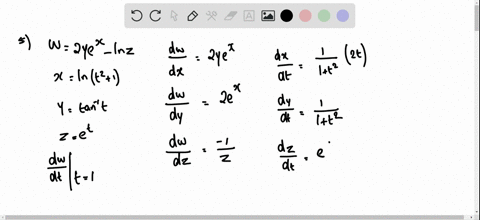 5) W = 2ye^x - ln z
x = ln(t²+1)
Y = tan⁻¹ t
z = e^t
dw/dt | t=1
dw/dx = 2ye^x
dw/dy = 2e^x
dw/dz = -1/z
dx/dt = 1/(1+t²) (2t)
dy/dt = 1/(1+t²)
dz/dt = e